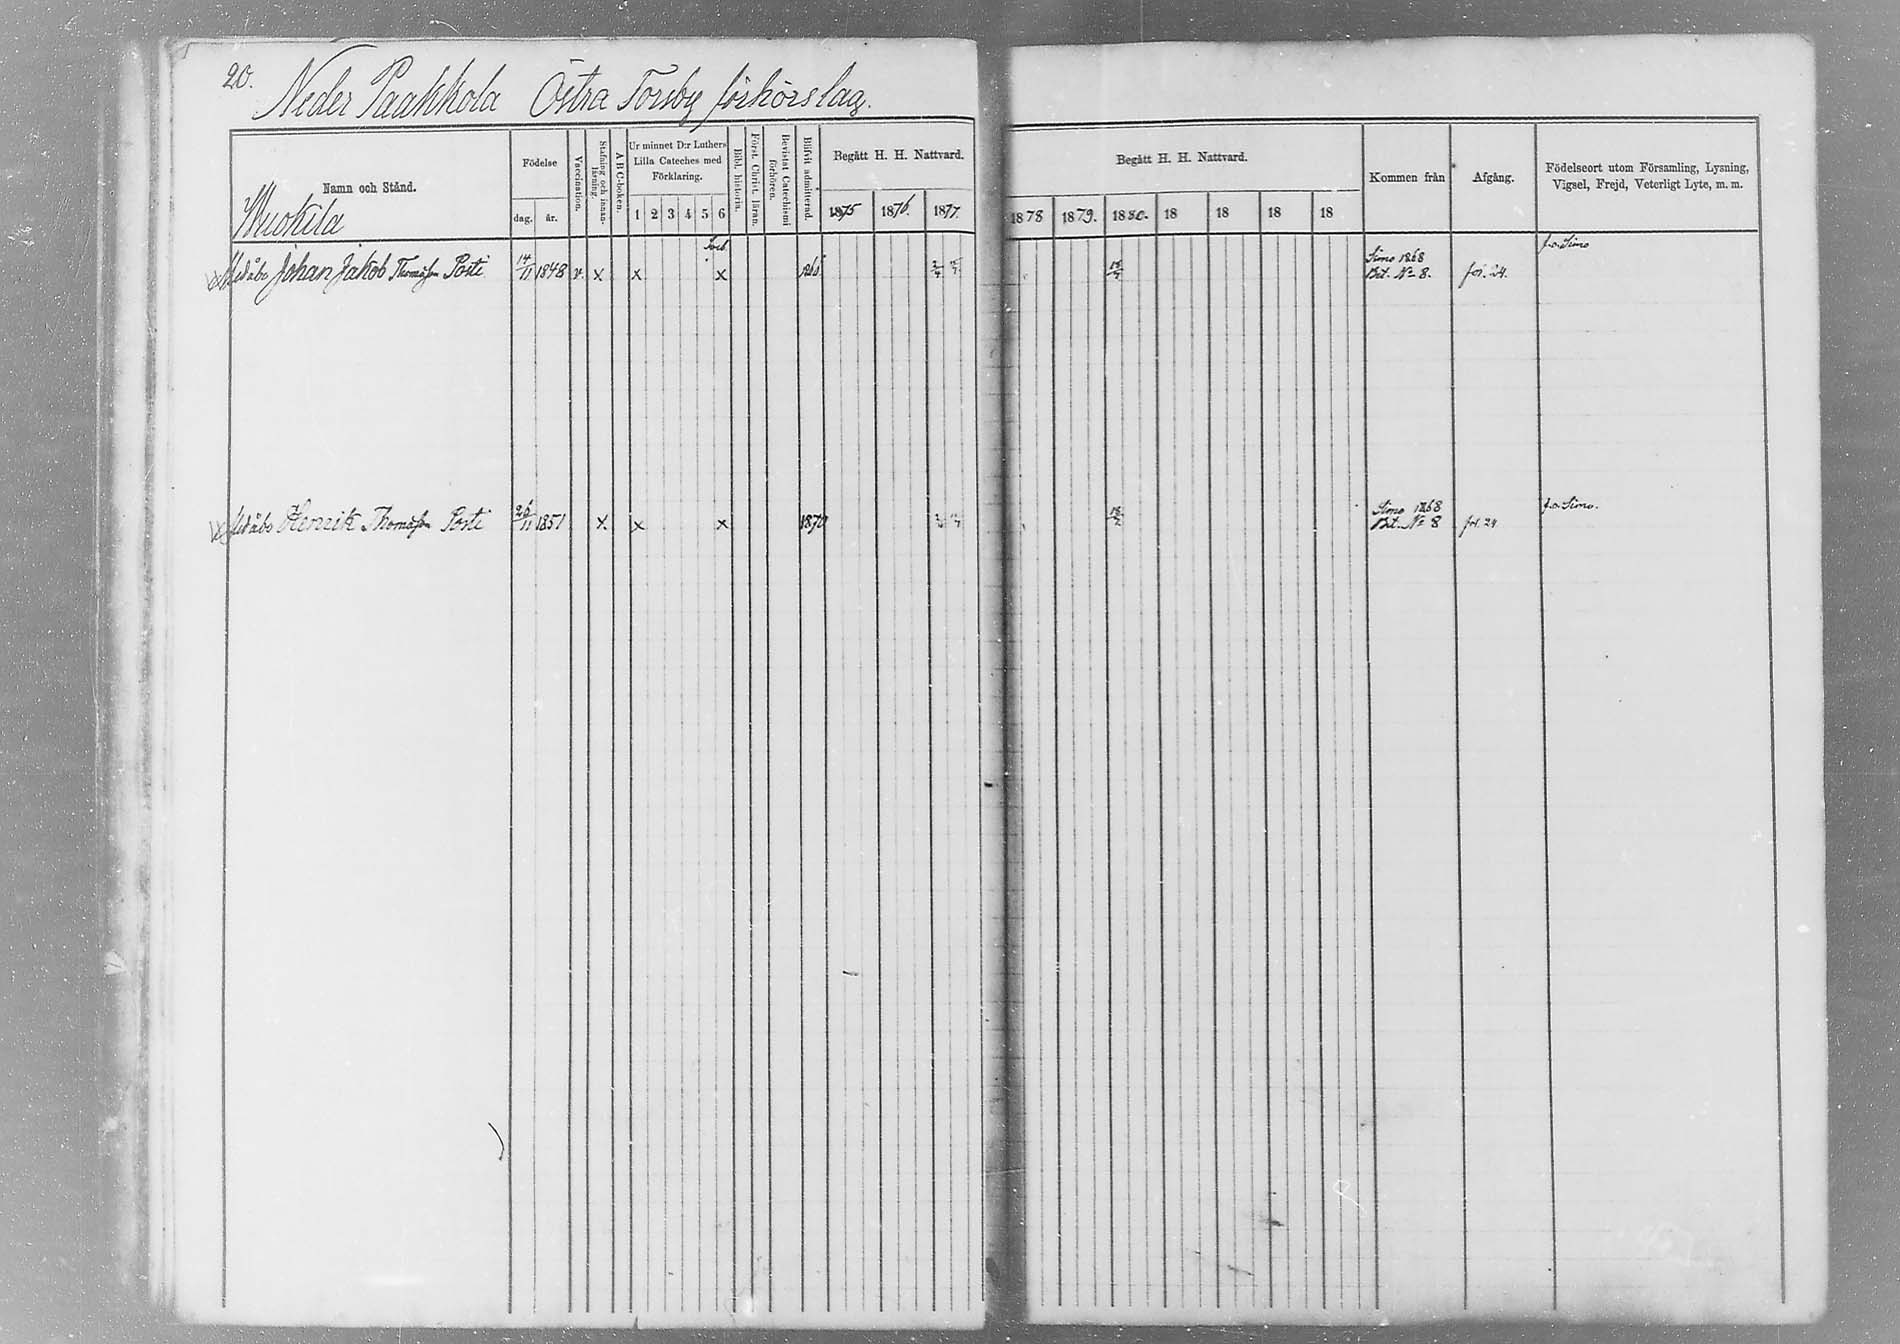 20.
Neder Paakkola Östra Torsby förhörslag.
Namn och Stånd.
Muokila
Födelse
dag. år.
Vaccination.
Stafning och innanläsning.
A B C-boken.
Ur minnet D:r Luthers
Lilla Cateches med
Förklaring.
1 2 3 4 5 6
Bibl. historia.
Först. Christ. läran.
Bevistat Catechismi förhören.
Blifvit admitterad.
Begått H. H. Nattvard.
1875 1876. 1877.
Begått H. H. Nattvard.
1878 1879. 1880. 18 18 18 18
Kommen från
Afgång.
Födelseort utom Församling, Lysning,
Vigsel, Frejd, Veterligt Lyte, m. m.
Johan Jakob Thomasson Posti 14/11 1848 v. x x x Simo 1868 Bet. No 8. fol. 24. f. o. Simo
Henrik Thomasson Posti 26/11 1851 x x x 1870 Simo 1868 Bet. No 8 fol. 24 f. o. Simo.